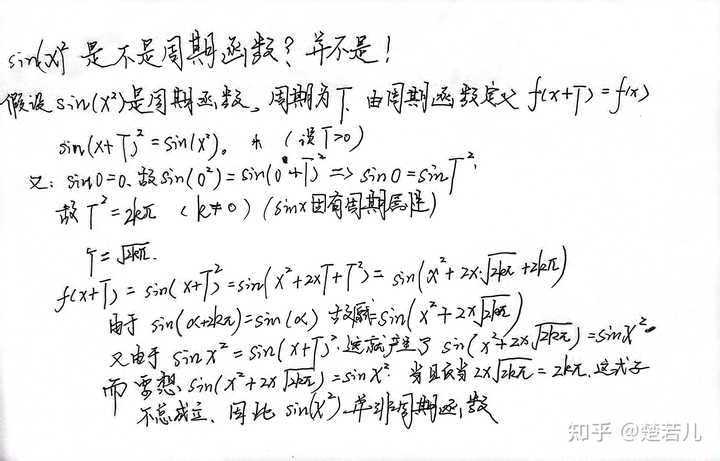 sin(x)² 是不是周期函数？并不是！
假设 sin(x²)是周期函数，周期为T. 由周期函数定义 f(x+T)=f(x)
sin(x+T)²=sin(x²)。 (设T>0)
又：sin0=0. 故 sin(0²)=sin(0+T)² => sin0=sinT²
故 T²=2kπ (k≠0) (sinx固有周期属性)
T=√2kπ.
f(x+T)=sin(x+T)²=sin(x²+2xT+T²)=sin(x²+2x·√2kπ+2kπ)
由于 sin(α+2kπ)=sin(α) 故原式=sin(x²+2x√2kπ)
又由于 sinx²=sin(x+T)². 这就产生了 sin(x²+2x√2kπ)=sinx².
而要想 sin(x²+2x√2kπ)=sinx². 当且仅当 2x√2kπ=2kπ. 这式子
不总成立. 因此 sin(x²) 并非周期函数
知乎 @楚若儿